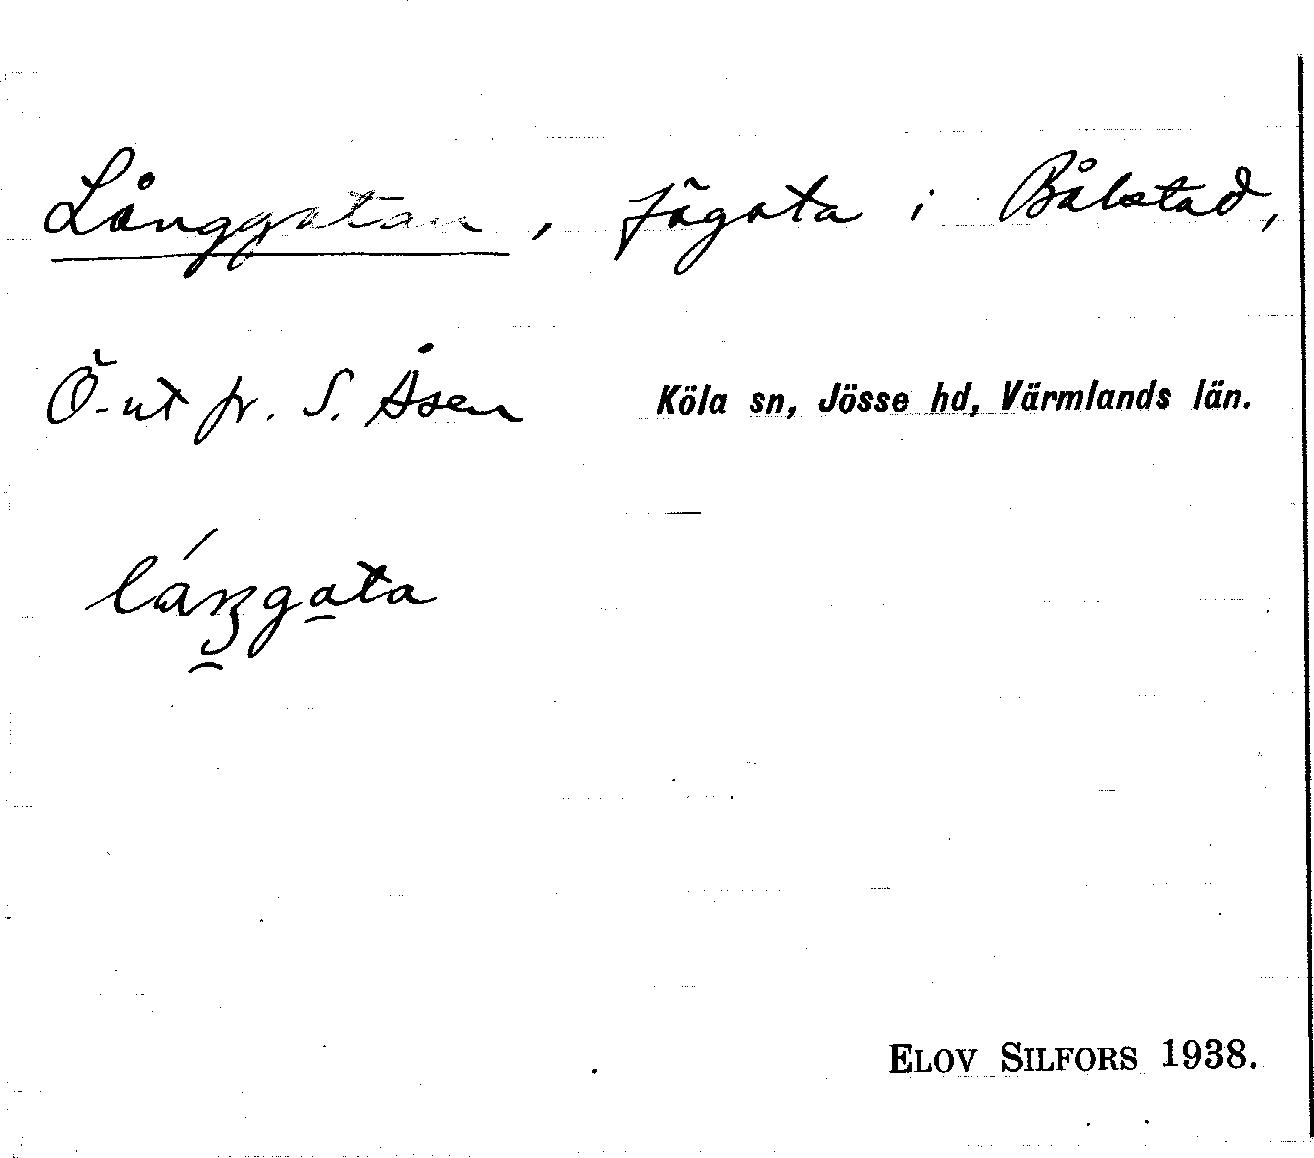 Långgatan, fägata i Bålstad,
Ö-ut fr. S. Åsen Köla sn, Jösse hd, Värmlands län.
ELOV SILFORS 1938.